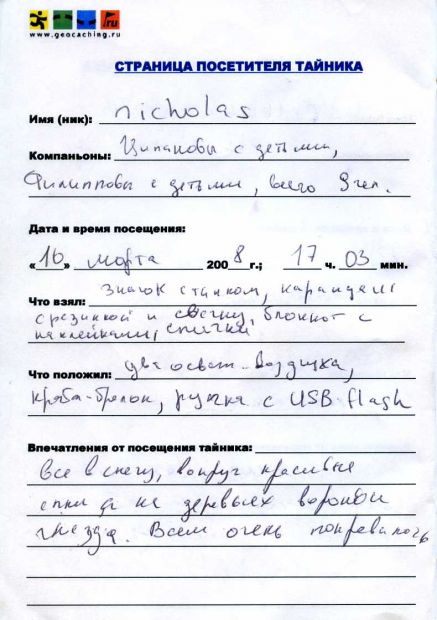 .ru
www.geocaching.ru
СТРАНИЦА ПОСЕТИТЕЛЯ ТАЙНИКА
Имя (ник): nicholas
Компаньоны: Ципановы с детьми,
Филипповы с детьми, всего 9 чел.
Дата и время посещения:
«16» марта 2008 г.; 17 ч. 03 мин.
Что взял: значок с танком, карандаш
с резинкой и свечку, блокнот с
наклейками, спички
Что положил: воздушка,
краба-брелок, ручка с USB flash
Впечатления от посещения тайника:
Все в снегу, вокруг красивые
на деревьях вороньи
гнезда. Всем очень понравилось